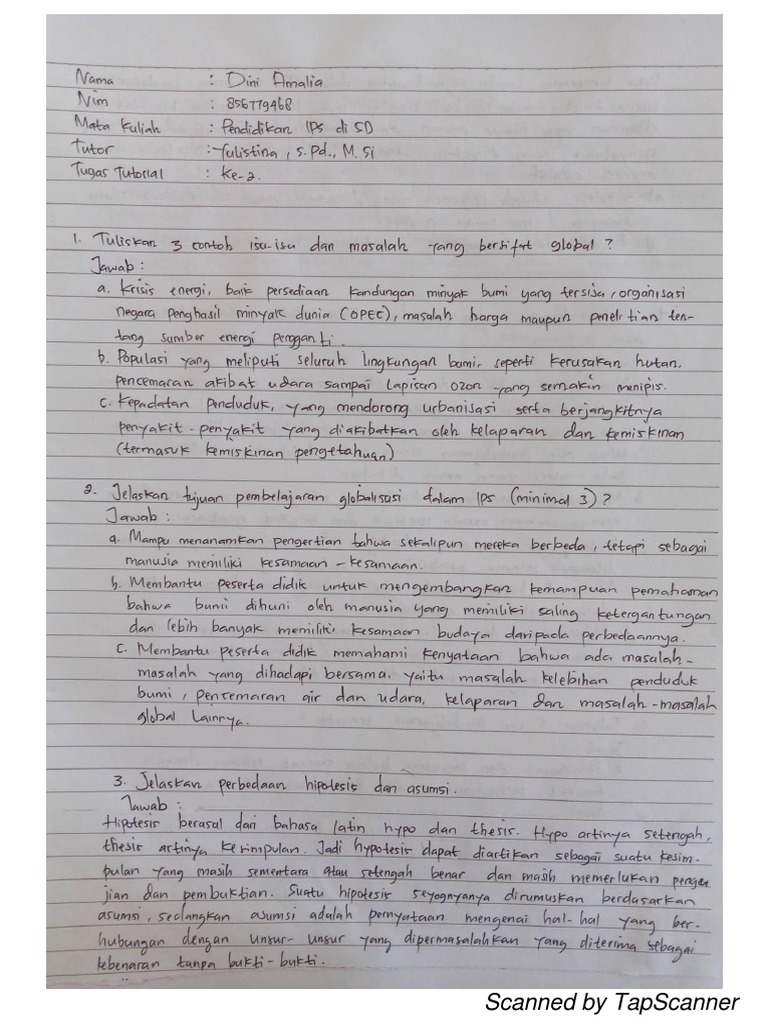 Nama : Dini Amalia
Nim : 856779468
Mata Kuliah : Pendidikan IPS di SD
Tutor : Yulistina, S.Pd., M.Si
Tugas Tutorial : Ke-2.
1. Tuliskan 3 contoh isu-isu dan masalah yang bersifat global ?
Jawab :
a. Krisis energi, baik persediaan kandungan minyak bumi yang tersisa, organisasi
negara penghasil minyak dunia (OPEC), masalah harga maupun penelitian ten-
tang sumber energi pengganti.
b. Populasi yang meliputi seluruh lingkungan bumi, seperti kerusakan hutan,
pencemaran akibat udara sampai lapisan ozon yang semakin menipis.
c. Kepadatan penduduk, yang mendorong urbanisasi serta berjangkitnya
penyakit-penyakit yang diakibatkan oleh kelaparan dan kemiskinan
(termasuk kemiskinan pengetahuan)
2. Jelaskan tujuan pembelajaran globalisasi dalam IPS (minimal 3) ?
Jawab :
a. Mampu menanamkan pengertian bahwa sekalipun mereka berbeda, tetapi sebagai
manusia memiliki kesamaan-kesamaan.
b. Membantu peserta didik untuk mengembangkan kemampuan pemahaman
bahwa bumi dihuni oleh manusia yang memiliki saling ketergantungan
dan lebih banyak memiliki kesamaan budaya daripada perbedaannya.
c. Membantu peserta didik memahami kenyataan bahwa ada masalah-
masalah yang dihadapi bersama, yaitu masalah kelebihan penduduk
bumi, pencemaran air dan udara, kelaparan dan masalah-masalah
global lainnya.
3. Jelaskan perbedaan hipotesis dan asumsi.
Jawab :
Hipotesis berasal dari bahasa latin hypo dan thesis. Hypo artinya setengah,
thesis artinya kesimpulan. Jadi hypotesis dapat diartikan sebagai suatu kesim-
pulan yang masih sementara atau setengah benar dan masih memerlukan penguj
jian dan pembuktian. Suatu hipotesis seyognyanya dirumuskan berdasarkan
asumsi, sedangkan asumsi adalah pernyataan mengenai hal-hal yang ber-
hubungan dengan unsur-unsur yang dipermasalahkan yang diterima sebagai
kebenaran tanpa bukti-bukti.
Scanned by TapScanner